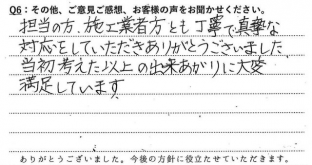 Q6：その他、ご意見ご感想、お客様の声をお聞かせください。
担当の方、施工業者方とも丁寧で真摯な
対応をしていただきありがとうございました
当初考えた以上の出来あがりに大変
満足しています
ありがとうございました。今後の方針に役立たせていただきます。